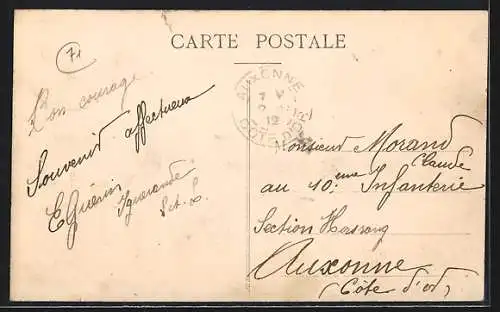 71
CARTE POSTALE
Bon courage
Souvenir affectueux
E Guérin
Iguerande
S.et.L.
AUXONNE
12
CÔTE D'OR
Monsieur Morand
Claude
au 10.ème Infanterie
Section
Auxonne
(Côte d'or)